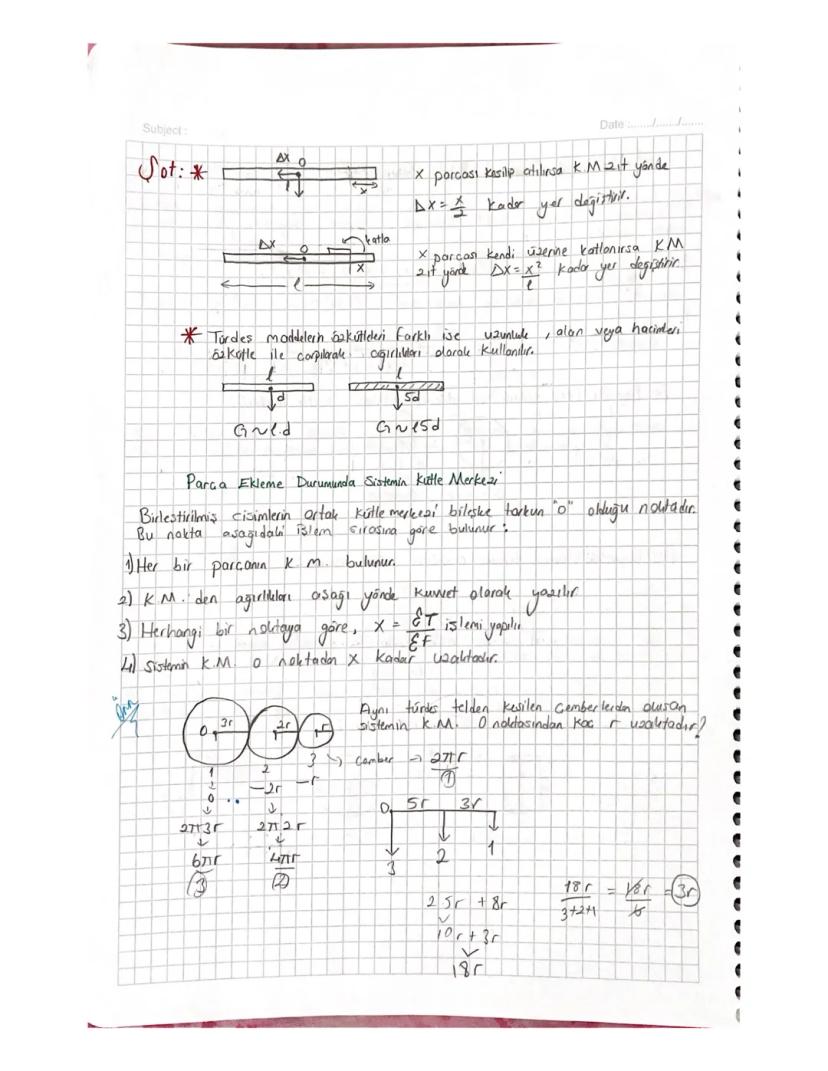 Subject:
Date :......./......./.......
Şot: *
Δx O
x
x parçası kesilip atılırsa K M zıt yönde
Δx = x/2 kadar yer değiştirir.
Δx O katla
x
l
x parçası kendi üzerine katlanırsa KM
zıt yönde Δx = x²/l kadar yer değiştirir
* Türdes maddelerin özkütleleri farklı ise uzunluk, alan veya hacimleri
özkütle ile çarpılarak ağırlıkları olarak kullanılır.
l l
d 5d
G~l.d G~l5d
Parça Ekleme Durumunda Sistemin Kütle Merkezi
Birleştirilmiş cisimlerin ortak kütle merkezi bileşke torkun "o" olduğu noktadır.
Bu nokta aşağıdaki işlem sırasına göre bulunur:
1) Her bir parçanın K.M. bulunur.
2) K.M.'den ağırlıkları aşağı yönde kuvvet olarak yazılır
3) Herhangi bir noktaya göre, x = ƐT/ƐF işlemi yapılır
4) Sistemin K.M. o noktadan x kadar uzaktadır.
Örn
O 3r 2r r
Aynı türdes telden kesilen çemberlerden oluşan
sistemin K.M. O noktasından kaç r uzaktadır?
1 2 3 → çember → 2πr
①
0 —2r —r
2π3r 2π2r
6πr 4πr
③ ②
O 5r 3r
3 2 1
2 5r + 8r
10r + 3r
18r
18r/3+2+1 = 18r/6 = 3r